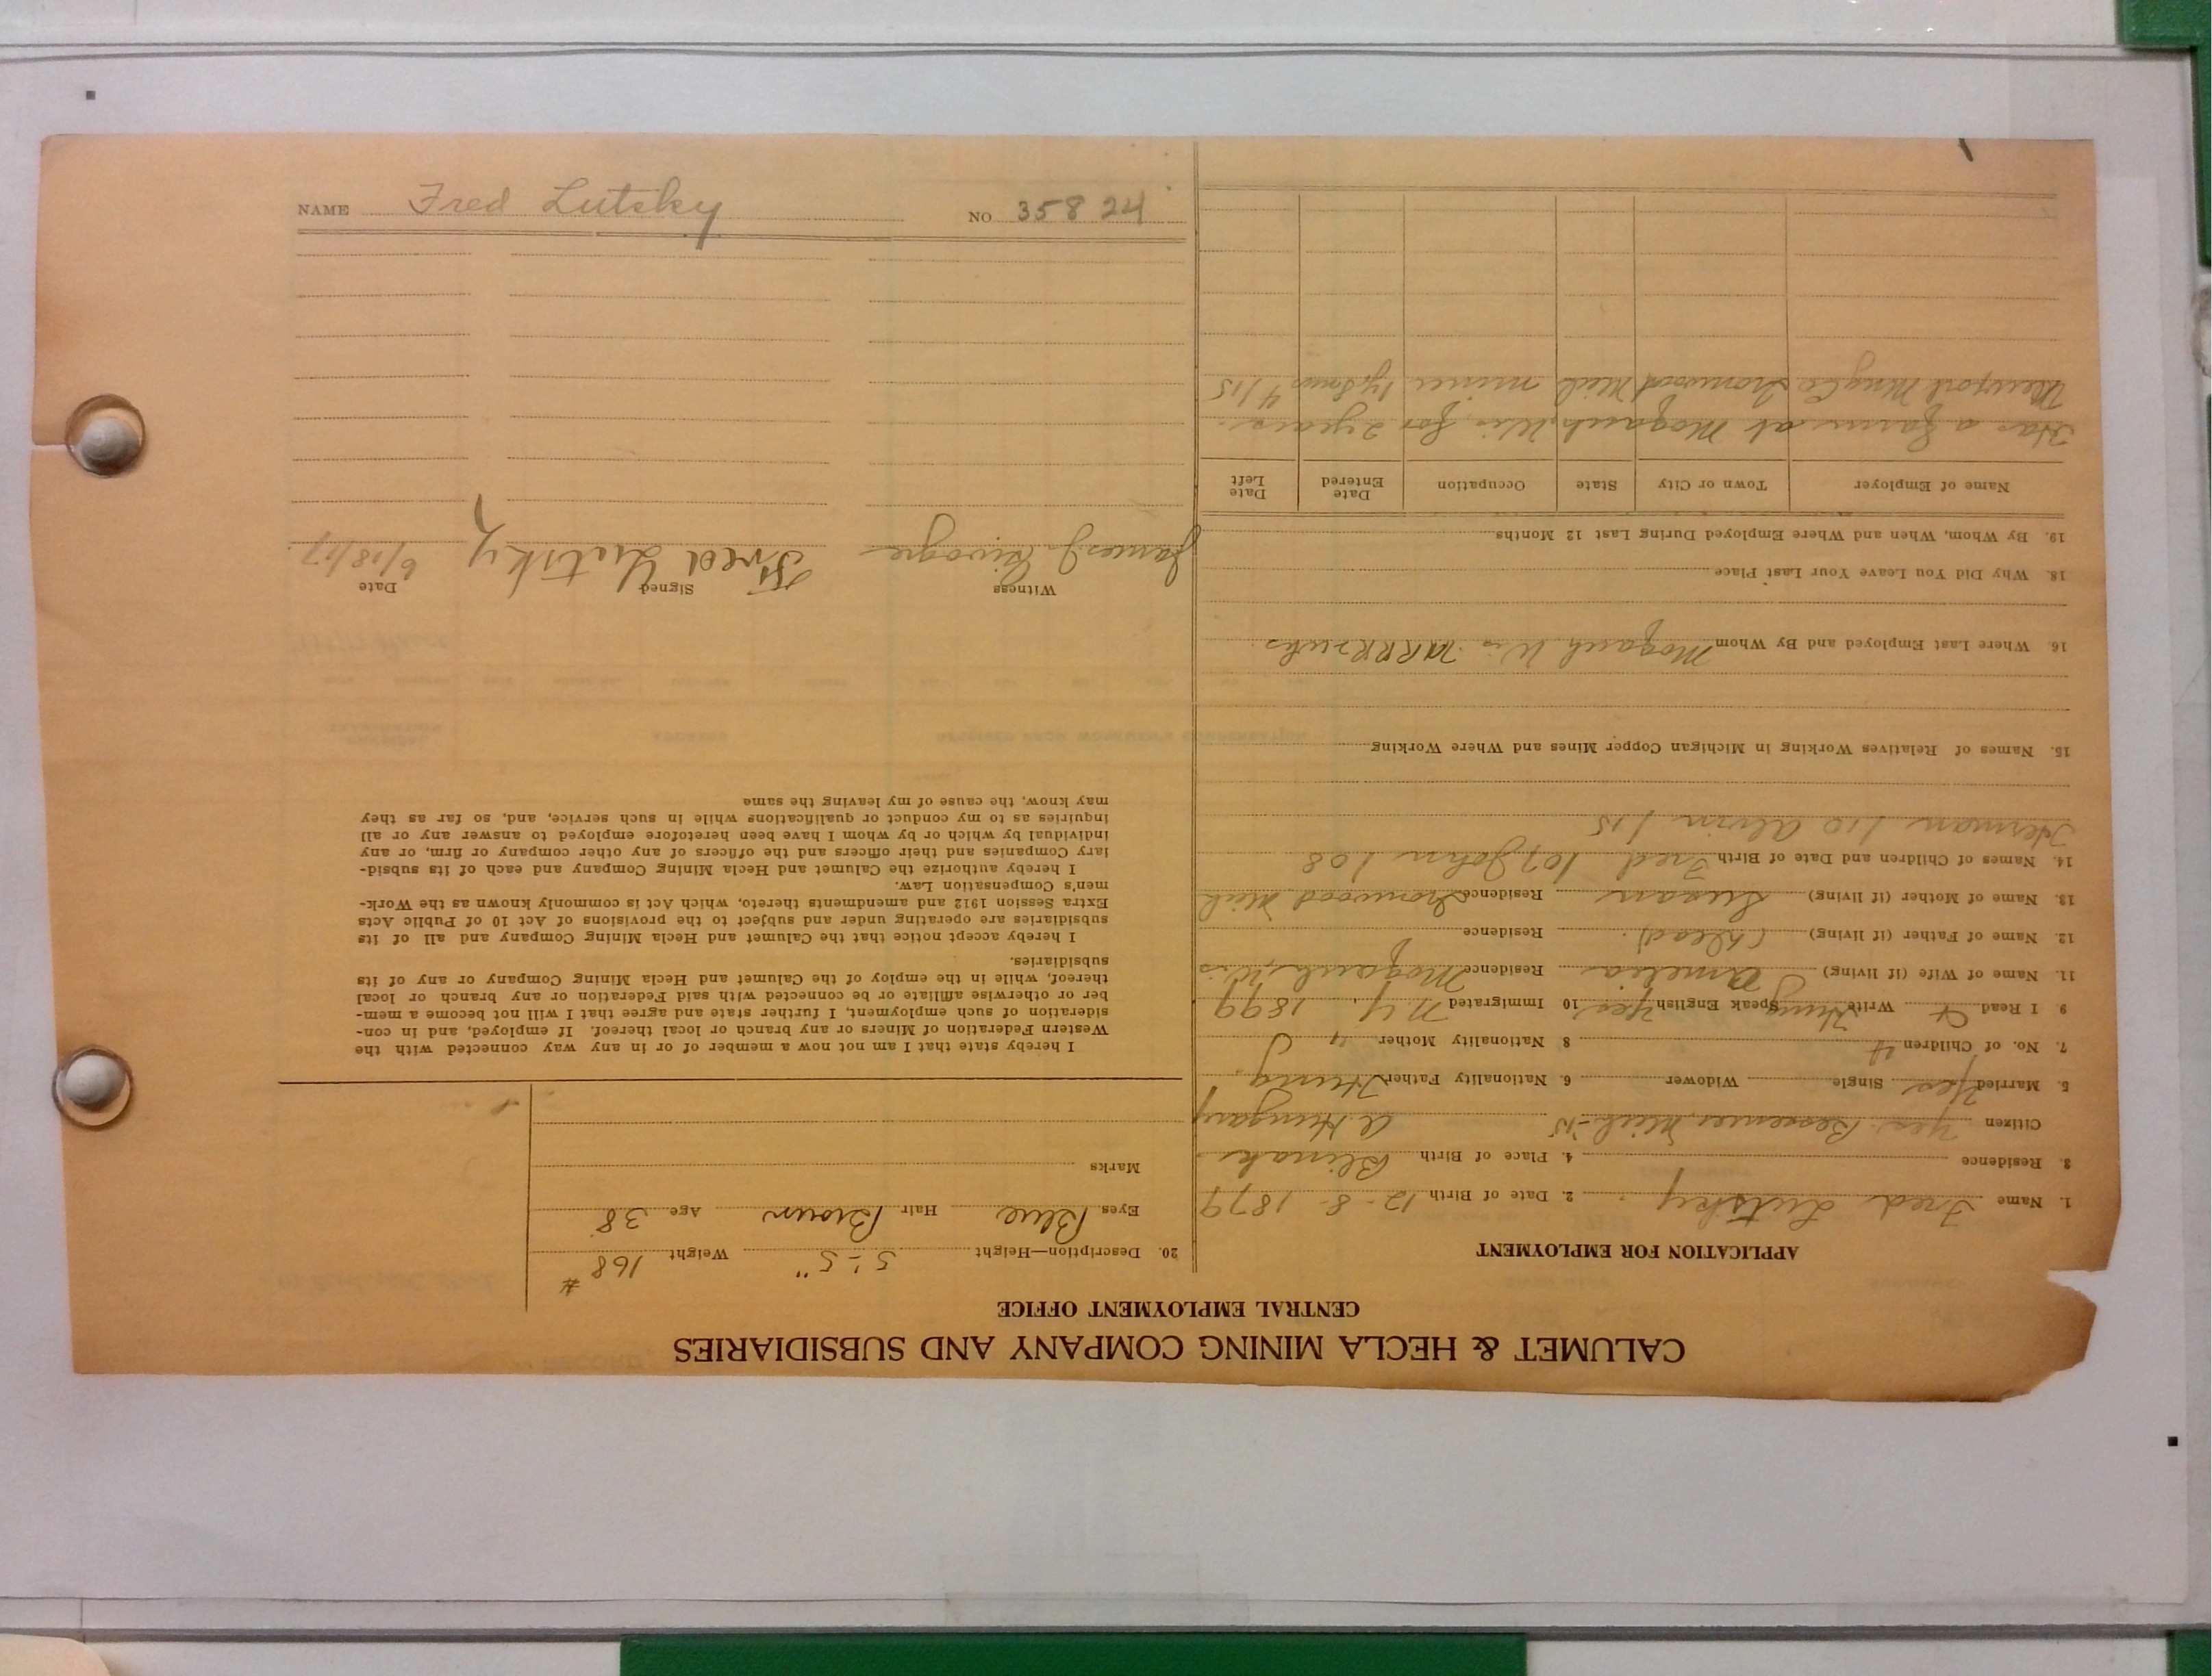 CALUMET & HECLA MINING COMPANY AND SUBSIDIARIES
CENTRAL EMPLOYMENT OFFICE
APPLICATION FOR EMPLOYMENT
1. Name Fred Lutsky 2. Date of Birth 12-8-1879
3. Residence 4. Place of Birth
Citizen Yes Bessemer, Mich-'15 A Hungary
5. Married Yes Single Widower 6. Nationality Father Hung.
7. No. of Children 4 8 Nationality Mother "
9. I Read Write Hung Speak English Yes 10 Immigrated N.Y. 1899
11. Name of Wife (if living) Amelia Residence Wis
12. Name of Father (if living) (Dead) Residence
13. Name of Mother (if living) Susan Residence Ironwood Mich
14. Names of Children and Date of Birth Fred 107 John 108
Herman 110 Alvin 115
15. Names of Relatives Working in Michigan Copper Mines and Where Working
16. Where Last Employed and By Whom Wis
18. Why Did You Leave Your Last Place
19. By Whom, When and Where Employed During Last 12 Months
Name of Employer Town or City State Occupation Date Entered Date Left
Has a farm at Wis. for 2 years.
Newport Mng Co Ironwood Mich miner 1y 8 mos 4/15
20. Description—Height 5'-5" Weight 168 #
Eyes Blue Hair Brown Age 38
Marks
I hereby state that I am not now a member of or in any way connected with the
Western Federation of Miners or any branch or local thereof. If employed, and in con-
sideration of such employment, I further state and agree that I will not become a mem-
ber or otherwise affiliate or be connected with said Federation or any branch or local
thereof, while in the employ of the Calumet and Hecla Mining Company or any of its
subsidiaries.
I hereby accept notice that the Calumet and Hecla Mining Company and all of its
subsidiaries are operating under and subject to the provisions of Act 10 of Public Acts
Extra Session 1912 and amendments thereto, which Act is commonly known as the Work-
men's Compensation Law.
I hereby authorize the Calumet and Hecla Mining Company and each of its subsid-
iary Companies and their officers and the officers of any other company or firm, or any
individual by which or by whom I have been heretofore employed to answer any or all
inquiries as to my conduct or qualifications while in such service, and, so far as they
may know, the cause of my leaving the same
Witness Signed Date
James J. Fred Lutsky 6/18/17
NAME Fred Lutsky NO 35824